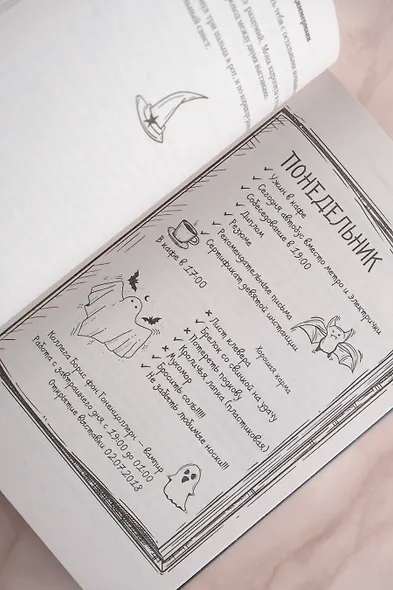 тебя с остальным
между двумя
три пальца в рот, и по
свист.
ПОНЕДЕЛЬНИК
✓ Ужин в кафе
✓ Сегодня автобус вместо метро и электрички
✓ Собеседование в 19:00
✓ Диплом
✓ Резюме
✓ Рекомендательные письма
✓ Сертификат девятой инстанции
В кафе в 17:00
Хорошая карма
× Лист клевера
✓ Брелок со свинкой на удачу
× Потереть подкову
✓ Кроличья лапка (пластиковая)
× Мухомор
✓ Бросить соль!!!!
✓ Не забыть любимые носки!!!
Коллега Борис фон Гогенцоллерн – вампир
Работа с завтрашнего дня с 19:00 до 01:00
Открытие выставки 02.07.2018